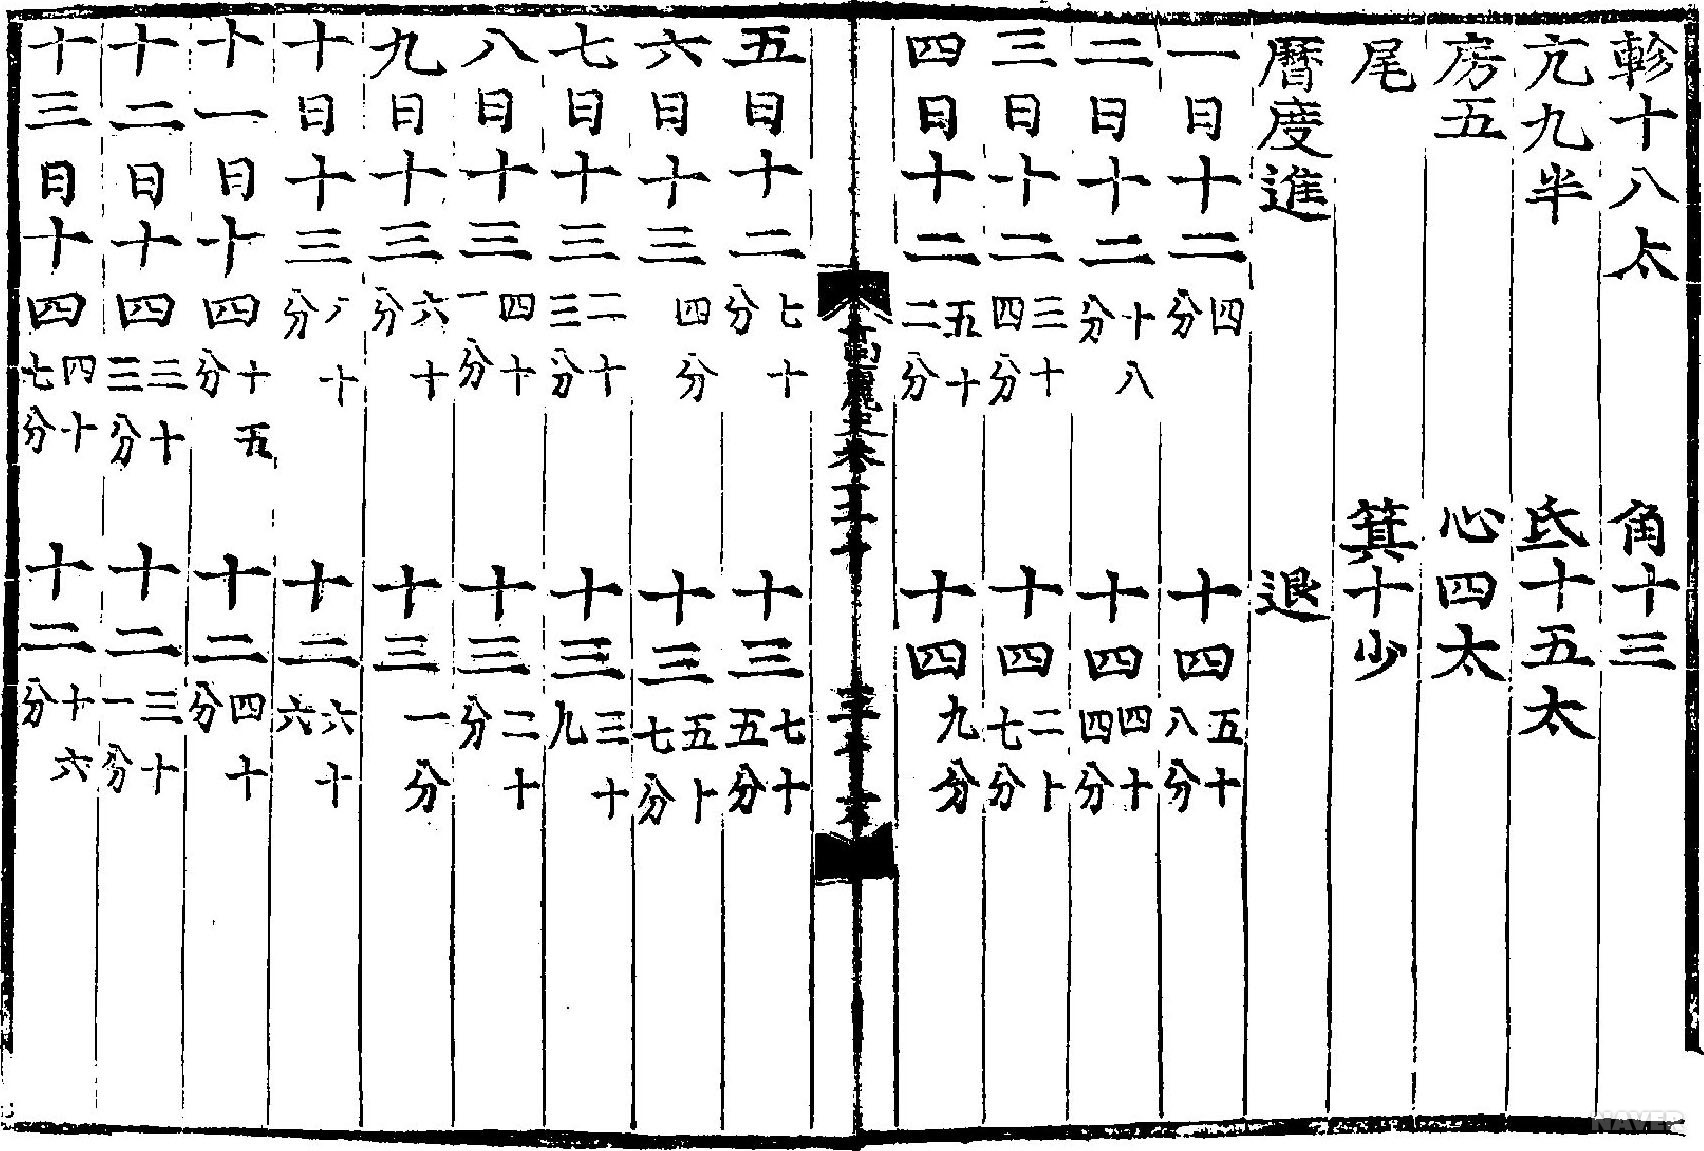 軫十八太 角十三
亢九半 氐十五太
房五 心四太
尾 箕十少
曆度進 退
一日十二四分 十四五十八分
二日十二十八分 十四四十四分
三日十二三十四分 十四二十七分
四日十二五十二分 十四九分
高麗史卷
五日十二七十分 十三七十五分
六日十三四分 十三五十七分
七日十三二十三分 十三三十九
八日十三四十一分 十三二十分
九日十三六十分 十三一分
十日十三八十分 十二六十六
十一日十四十五分 十二四十分
十二日十四三十三分 十二三十一分
十三日十四四十七分 十二十六分
NAVER